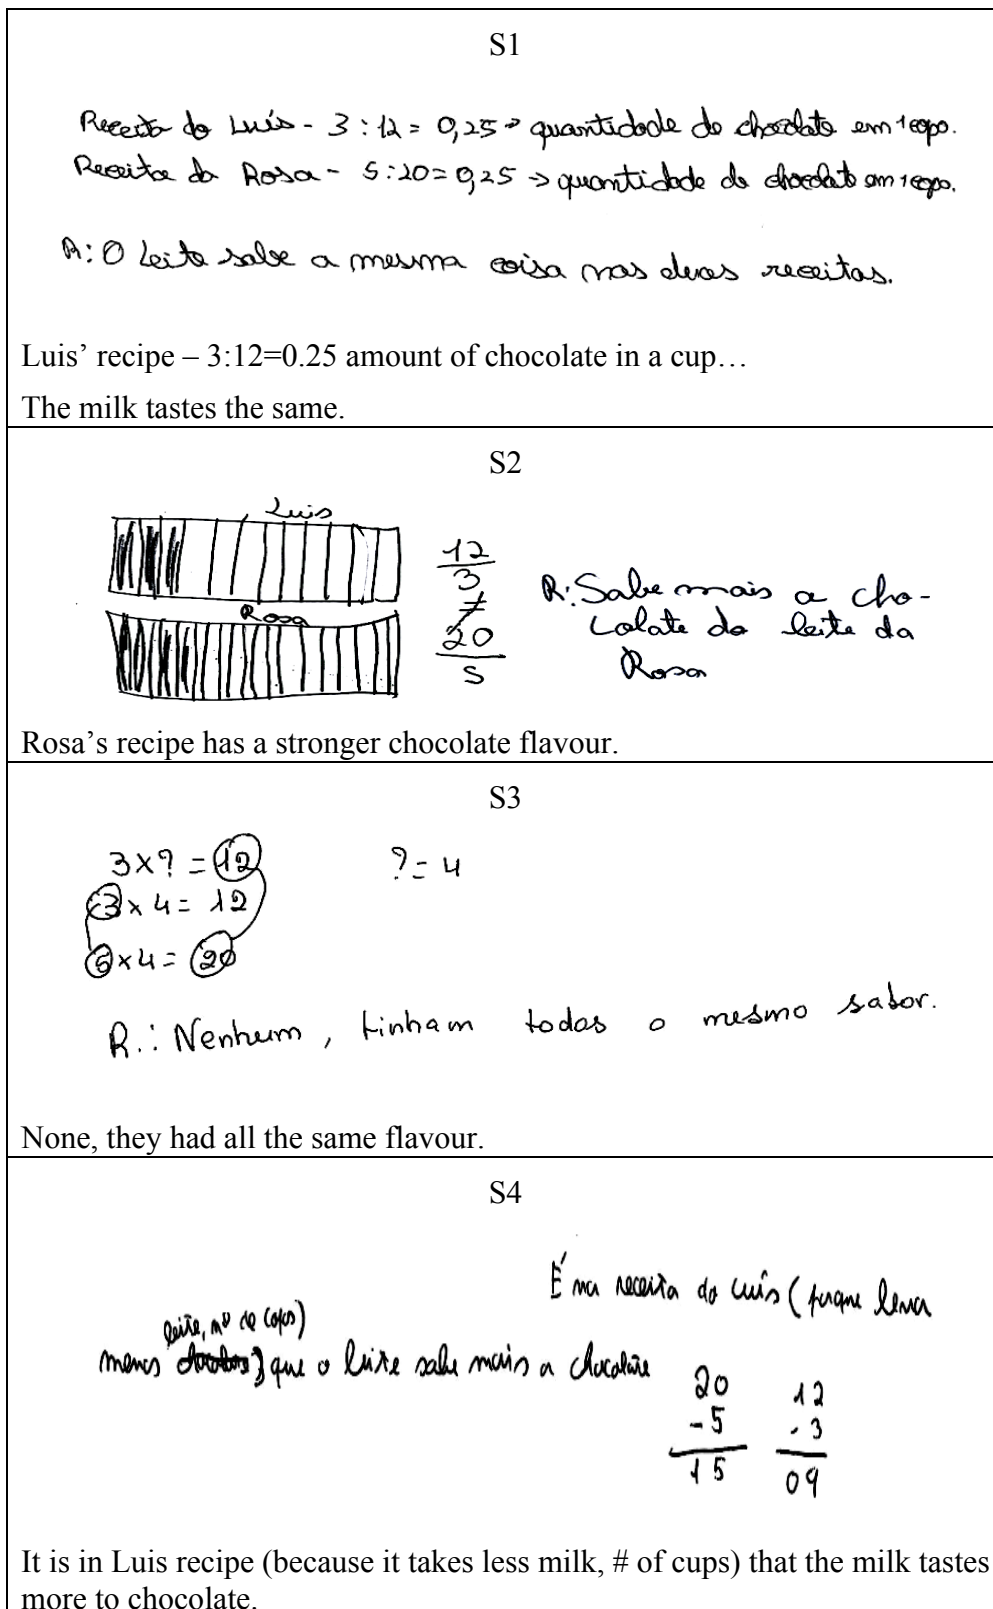 S1
Receita do Luís - 3 : 12 = 0,25 → quantidade de chocolate em 1 copo.
Receita da Rosa - 5 : 20 = 0,25 → quantidade de chocolate em 1 copo.
R: O leite sabe a mesma coisa nas duas receitas.
Luis’ recipe – 3:12=0.25 amount of chocolate in a cup…
The milk tastes the same.
S2
Luis
Rosa
12
3
≠
20
5
R: Sabe mais a cho-
colate do leite da
Rosa
Rosa’s recipe has a stronger chocolate flavour.
S3
3 x ? = 12
? = 4
3 x 4 = 12
5 x 4 = 20
R.: Nenhum, tinham todos o mesmo sabor.
None, they had all the same flavour.
S4
É na receita do Luís (porque leva
leite, nº de copos)
menos que o leite sabe mais a chocolate
20
-5
15
12
-3
09
It is in Luis recipe (because it takes less milk, # of cups) that the milk tastes
more to chocolate.